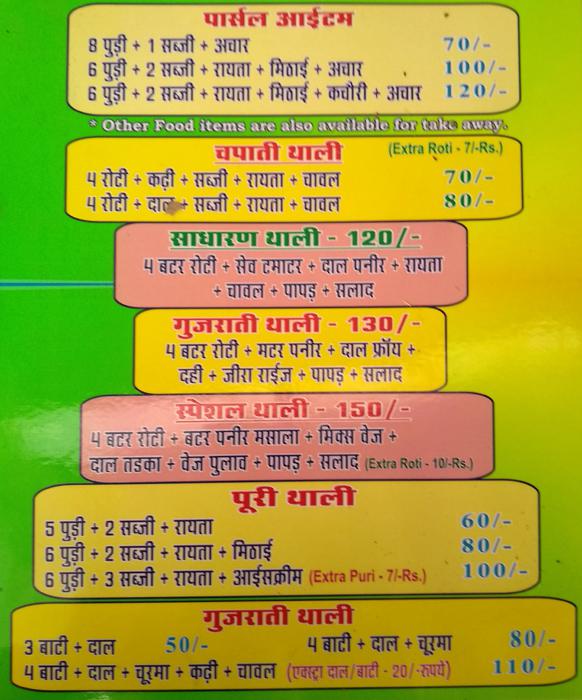 पार्सल आईटम
8 पुड़ी + 1 सब्जी + अचार 70/-
6 पुड़ी + 2 सब्जी + रायता + मिठाई + अचार 100/-
6 पुड़ी + 2 सब्जी + रायता + मिठाई + कचोरी + अचार 120/-
* Other Food items are also available for take away.
चपाती थाली (Extra Roti - 7/-Rs.)
4 रोटी + कढ़ी + सब्जी + रायता + चावल 70/-
4 रोटी + दाल + सब्जी + रायता + चावल 80/-
साधारण थाली - 120/-
4 बटर रोटी + सेव टमाटर + दाल पनीर + रायता
+ चावल + पापड़ + सलाद
गुजराती थाली - 130/-
4 बटर रोटी + मटर पनीर + दाल फ्रॉय +
दही + जीरा राईज + पापड़ + सलाद
स्पेशल थाली - 150/-
4 बटर रोटी + बटर पनीर मसाला + मिक्स वेज +
दाल तडका + वेज पुलाव + पापड़ + सलाद (Extra Roti - 10/-Rs.)
पूरी थाली
5 पुड़ी + 2 सब्जी + रायता 60/-
6 पुड़ी + 2 सब्जी + रायता + मिठाई 80/-
6 पुड़ी + 3 सब्जी + रायता + आईसक्रीम (Extra Puri - 7/-Rs.) 100/-
गुजराती थाली
3 बाटी + दाल 50/- 4 बाटी + दाल + चूरमा 80/-
4 बाटी + दाल + चूरमा + कढ़ी + चावल (एक्स्ट्रा दाल/बाटी - 20/-रुपये) 110/-